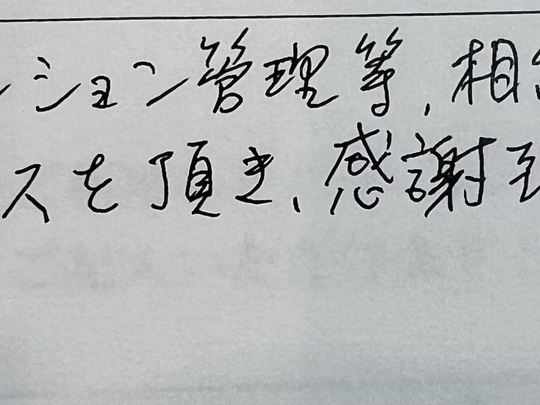 ション管理等,相
スを頂き、感謝至